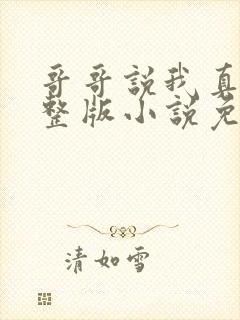 哥哥説我真
整版小説免
清如雪